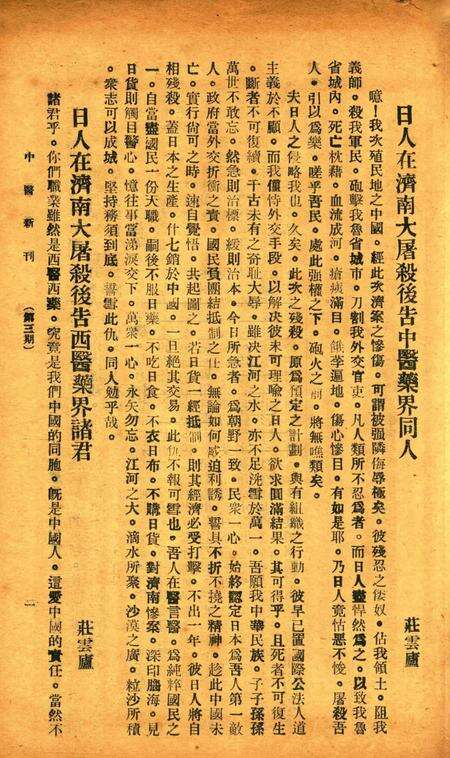 日人在濟南大屠殺後告中醫藥界同人　莊雲廬
噫！我次殖民地之中國。經此次濟案之慘傷。可謂被强隣侮辱極矣。彼殘忍之倭奴。佔我領土。阻我
義師。殺我軍民。砲擊我魯省城市。刀割我外交官吏。凡人類所不忍爲者。而日人盡悍然爲之。以致我魯
省城內。死亡枕藉。血流成河。瘡痍滿目。餓莩遍地。傷心慘目。有如是耶。乃日人竟怙惡不悛。屠殺吾
人。引以爲樂。嗟乎吾民。處此强權之下。砲火之前。將無噍類矣。
夫日人之侵略我也。久矣。此次之殘殺。原爲預定之計劃。與有組織之行動。彼早已置國際公法人道
主義於不顧。而我僅恃外交手段。以解決彼未可理喻之日人。欲求圓滿結果。其可得乎。且死者不可復生
。斷者不可復續。千古未有之奇耻大辱。雖決江河之水。亦不足洗雪於萬一。吾願我中華民族。子子孫孫
萬世不敢忘。然急則治標。緩則治本。今日所急者。爲朝野一致。民衆一心。始終認定日本爲吾人第一敵
人。政府當外交折衝之責。國民負團結抵制之任。無論如何威迫利誘。誓具不折不撓之精神。趁此中國未
亡。實行尙可之時。速自覺悟。共起圖之。若日貨一經抵制。則其經濟必受打擊。不出一年。彼日人將自
相殘殺。蓋日本之生產。什七銷於中國。一旦絕其交易。此仇不報可雪也。吾人在醫言醫。爲純粹國民之
一。自當盡國民一份天職。嗣後不服日藥。不吃日食。不衣日布。不購日貨。對濟南慘案。深印腦海。見
日貨則觸目驚心。憶往事當涕淚交下。萬衆一心。永矢勿忘。江河之大。滴水所聚。沙漠之廣。粒沙所積
。衆志可以成城。堅持務須到底。誓雪此仇。同人勉乎哉。
日人在濟南大屠殺後告西醫藥界諸君　莊雲廬
諸君乎。你們職業雖然是西醫西藥。究竟是我們中國的同胞。旣是中國人。這愛中國的責任。當然不
中醫新刊　（第三期）　一